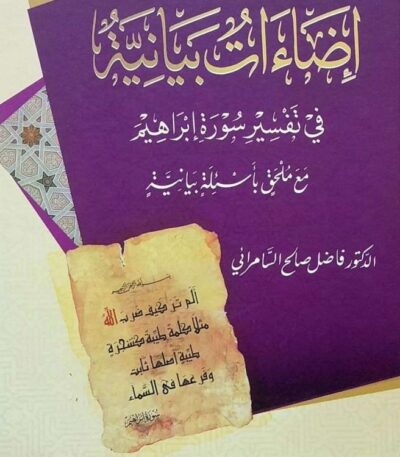 إِضَاءَاتٌ بَيَانِيَّةٌ
فِي تَفْسِيرِ سُورَةِ إِبْرَاهِيمَ
مَعَ مُلْحَقٍ بِأَسْئِلَةٍ بَيَانِيَّةٍ
الدكتور فاضل صالح السَّامرائي
بسم الله الرحمن الرحيم
ألم تر كيف ضرب الله
مثلا كلمة طيبة كشجرة
طيبة أصلها ثابت
وفرعها في السماء
سورة إبراهيم